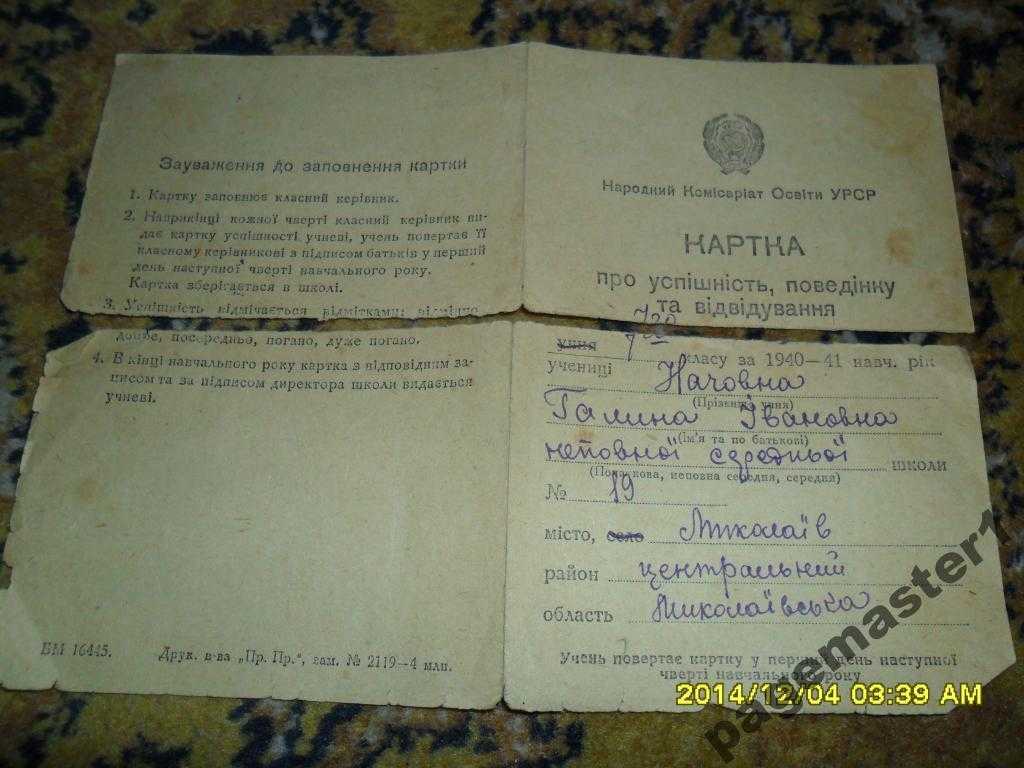 Зауваження до заповнення картки
1. Картку заповнює класний керівник.
2. Наприкінці кожної чверті класний керівник ви-
дає картку успішності учневі, учень повертає її
класному керівникові з підписом батьків у перший
день наступної чверті навчального року.
Картка зберігається в школі.
3. Успішність відмічається відмітками: відмінно,
добре, посередньо, погано, дуже погано.
4. В кінці навчального року картка з відповідним за-
писом та за підписом директора школи видається
учневі.
БМ 16445.
Друк. в-ва „Пр. Пр.", зам. № 2119—4 млн.
Народний Комісаріат Освіти УРСР
КАРТКА
про успішність, поведінку
та відвідування
учня
учениці класу за 1940—41 навч. рік
(Прізвище учня)
Галина Івановна
(ім'я та по батькові)
неповної середньої школи
(Початкова, неповна середня, середня)
№ 19
місто, село Миколаїв
район центральний
область Миколаївська
Учень повертає картку у перший день наступної
чверті навчального року
2014/12/04 03:39 AM
pagemaster1